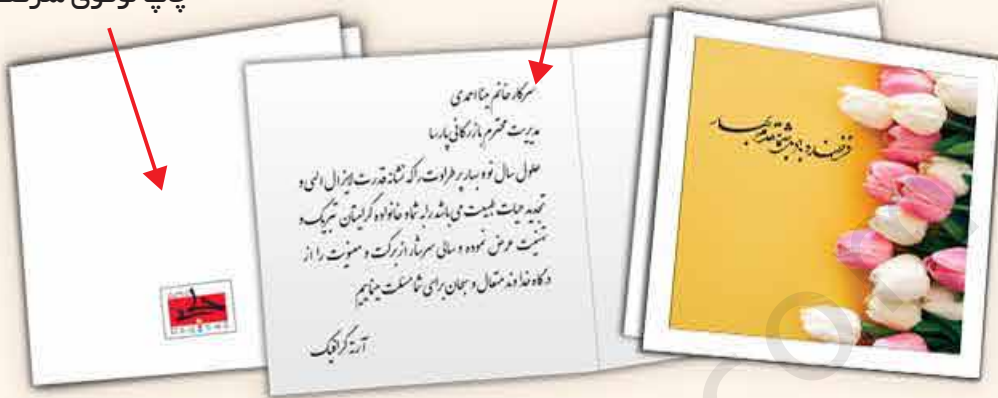 چاپ لوگوی شرکت
سرکار خانم مینا احمدی
مدیریت محترم بازرگانی پارسا
حلول سال نو و بهار پر طراوت را که نشانه قدرت لایزال الهی و
تجدید حیات طبیعت می باشد را به شما و خانواده گرامیتان تبریک و
تهنیت عرض نموده و سالی سرشار از برکت و معنویت را از
درگاه خداوند متعال و سبحان برای شما مسئلت مینماییم
آرتا گرافیک
فرخنده باد بر شما مقدم بهار